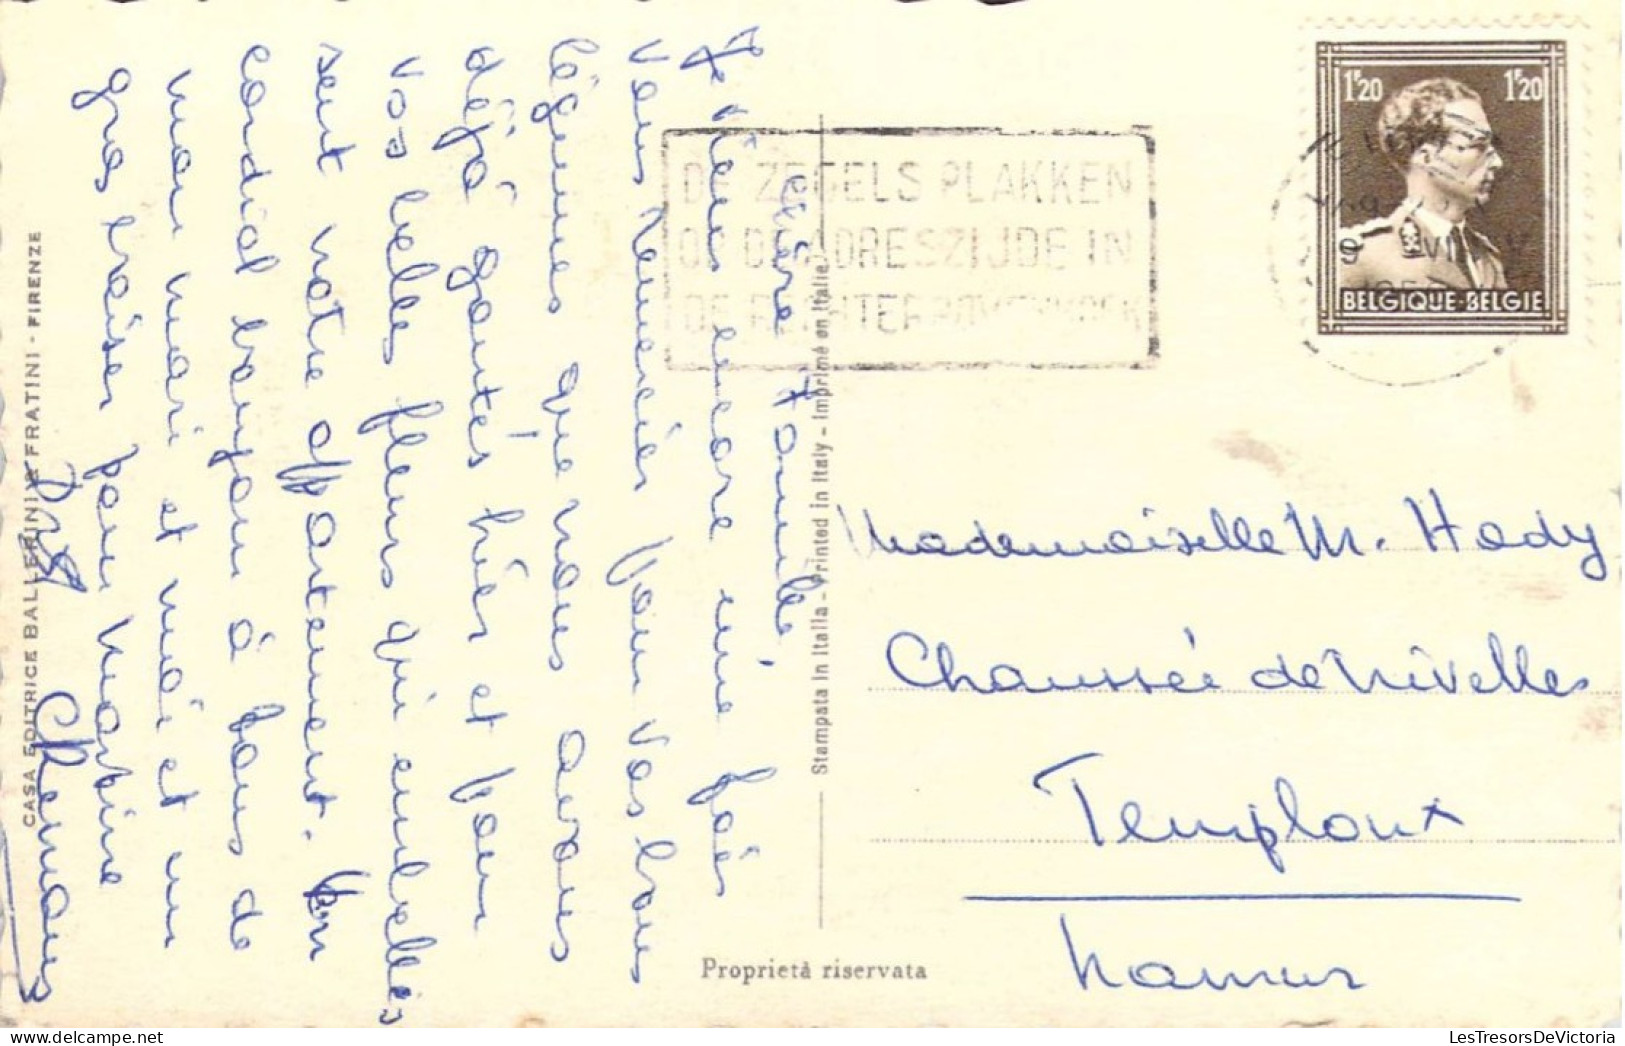 Chère Famille
Je viens encore une fois
vous remercier pour vos bons
légumes que nous avons
déjà goutés hier et pour
vos belles fleurs qui embellis
sent notre appartement. Un
cordial bonjour à tous de
mon mari et moi et un
gros baiser pour Martine
CASA EDITRICE BALLERINI & FRATINI - FIRENZE
Stampata in Italia - Printed in Italy - Imprimé en Italie
Proprietà riservata
DE ZEGELS PLAKKEN
OP DE ADRESZIJDE IN
DE RECHTERBOVENHOEK
1F20 1F20
BELGIQUE·BELGIE
Mademoiselle M. Hody
Chaussée de Nivelles
Temploux
Namur
LesTresorsDeVictoria